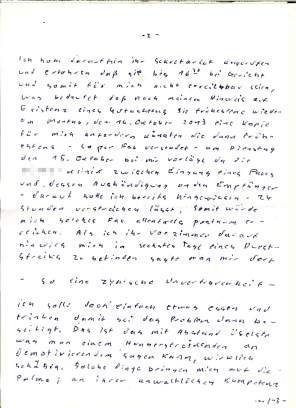 - 2 -
Ich habe daraufhin ihr Sekretariat angerufen
und erfahren daß sie bis 16³⁰ bei Gericht
und somit für mich nicht erreichbar seien,
was bedeutet daß nach meinem Hinweis auf
Existenz eines Gutachtens Sie frühestens wieder
am Montag, den 14. Oktober 2013 eine Kopie
für mich anfordern könnten die dann früh-
estens - so per Fax versendet - am Dienstag
den 15. Oktober bei mir vorläge da die
zwischen Eingang eines Faxes
und dessen Aushändigung an den Empfänger
- darauf hatte ich bereits hingewiesen - 24
Stunden verstreichen lässt, somit würde
mich solches Fax allenfalls postum er-
reichen. Als ich ihr Vorzimmer darauf
hinwies mich im sechsten Tage eines Durst-
streiks zu befinden sagte man mir dort
- so eine zynische Unverfrorenheit -
ich solle doch einfach etwas essen und
trinken damit sei das Problem dann be-
seitigt. Das ist das mit Abstand übelste
was man einem Hungerstreikenden an
Demotivierendem sagen kann, wirklich
schäbig. Solche Dinge bringen mich auf die
Palme; an ihrer anwaltlichen Kompetenz
- 3 -